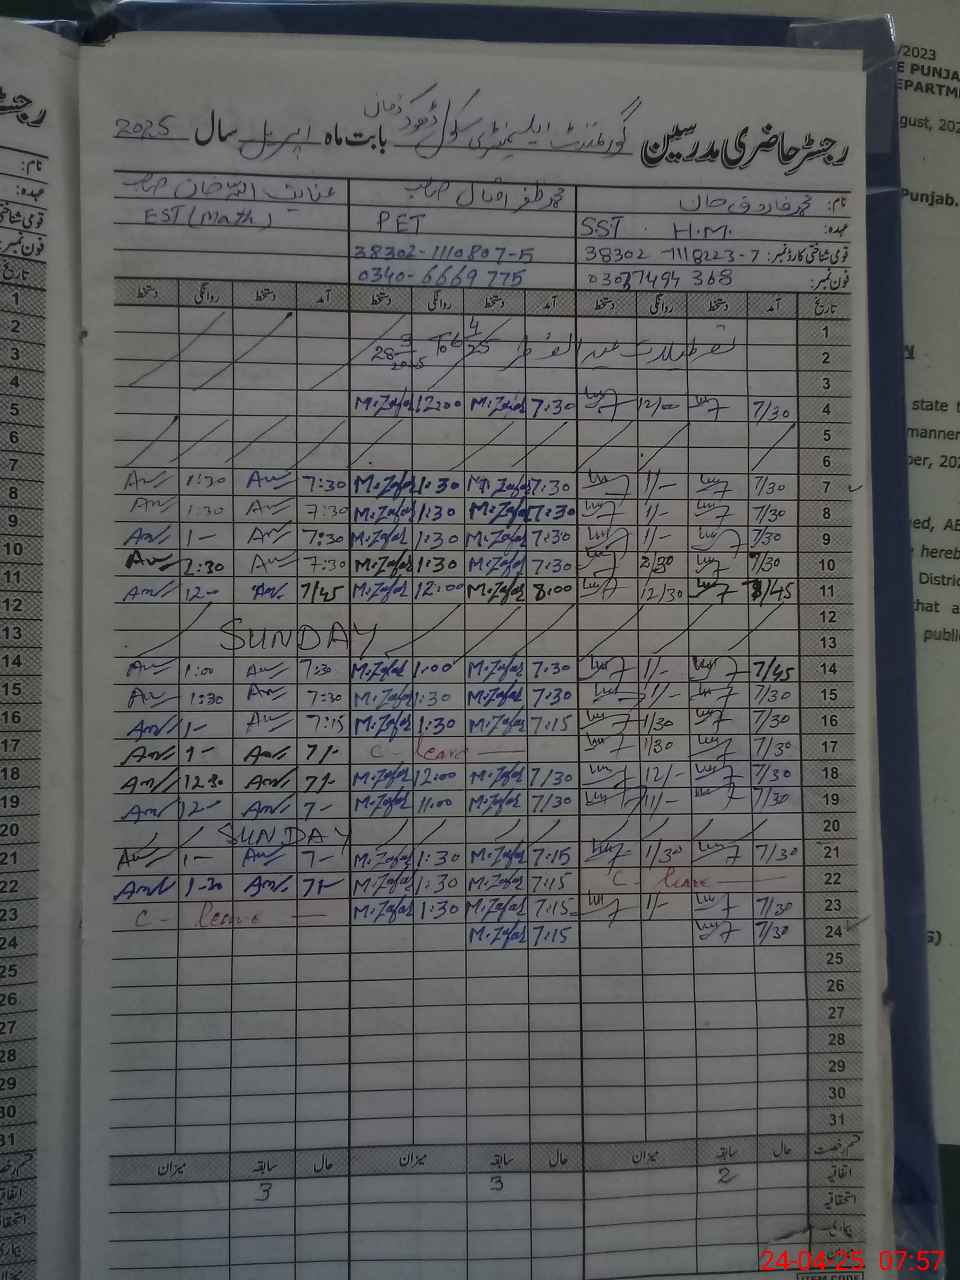 رجسٹر حاضری مدرسین گورنمنٹ ایلیمنٹری سکول ڈھوک زمان بابت ماہ اپریل سال 2025
نام: محمد فاروق خان محمد ظفر اقبال صاحب عنایت اللہ خان صاحب
عہدہ: SST H.M. PET EST (Math)
قومی شناختی کارڈ نمبر: 38302-1118223-7 38302-1110807-5
فون نمبر: 0340-6669775
تاریخ آمد دستخط روانگی دستخط آمد دستخط روانگی دستخط آمد دستخط روانگی دستخط
1 تعطیلات عید الفطر
2
3
4 7/30 12/- 7:30 M.Zafar 12:00 M.Zafar
5
6
7 7/30 1/- 7:30 M.Zafar 1:30 M.Zafar 7:30 1:30
8 7/30 1/- 7:30 M.Zafar 1:30 M.Zafar 7:30 1:30
9 7/30 1/- 7:30 M.Zafar 1:30 M.Zafar 7:30 1-
10 7/30 2/30 7:30 M.Zafar 1:30 M.Zafar 7:30 2:30
11 12/30 8:00 M.Zafar 12:00 M.Zafar 7/45 12-
12
13 SUNDAY
14 7/45 1/- 7:30 M.Zafar 1:00 M.Zafar 7:30 1:00
15 7/30 1/- 7:30 M.Zafar 1:30 M.Zafar 7:30 1:30
16 7/30 1/30 7:15 M.Zafar 1:30 M.Zafar 7:15 1-
17 7/30 1/30 C- leave 7/- 1-
18 7/30 12/- 7/30 M.Zafar 12:00 M.Zafar 7/- 12.30
19 7/30 11/- 7/30 M.Zafar 11:00 M.Zafar 7- 12-
20 SUNDAY
21 7/30 1/30 7:15 M.Zafar 1:30 M.Zafar 7- 1-
22 C- leave 7:15 M.Zafar 1:30 M.Zafar 7- 1-30
23 7/30 1/- 7:15 M.Zafar 1:30 M.Zafar C- leave
24 7/30 7:15 M.Zafar
25
26
27
28
29
30
31
قسم رخصت حال سابقہ میزان حال سابقہ میزان حال سابقہ میزان
اتفاقیہ 2 3 3
استحقاقیہ
بیماری
24-04-25 07:57
/2023
E PUNJA
EPARTME
gust, 202
Punjab.
state t
manner
ber, 202
ed, AE
hereb
District
that a
public